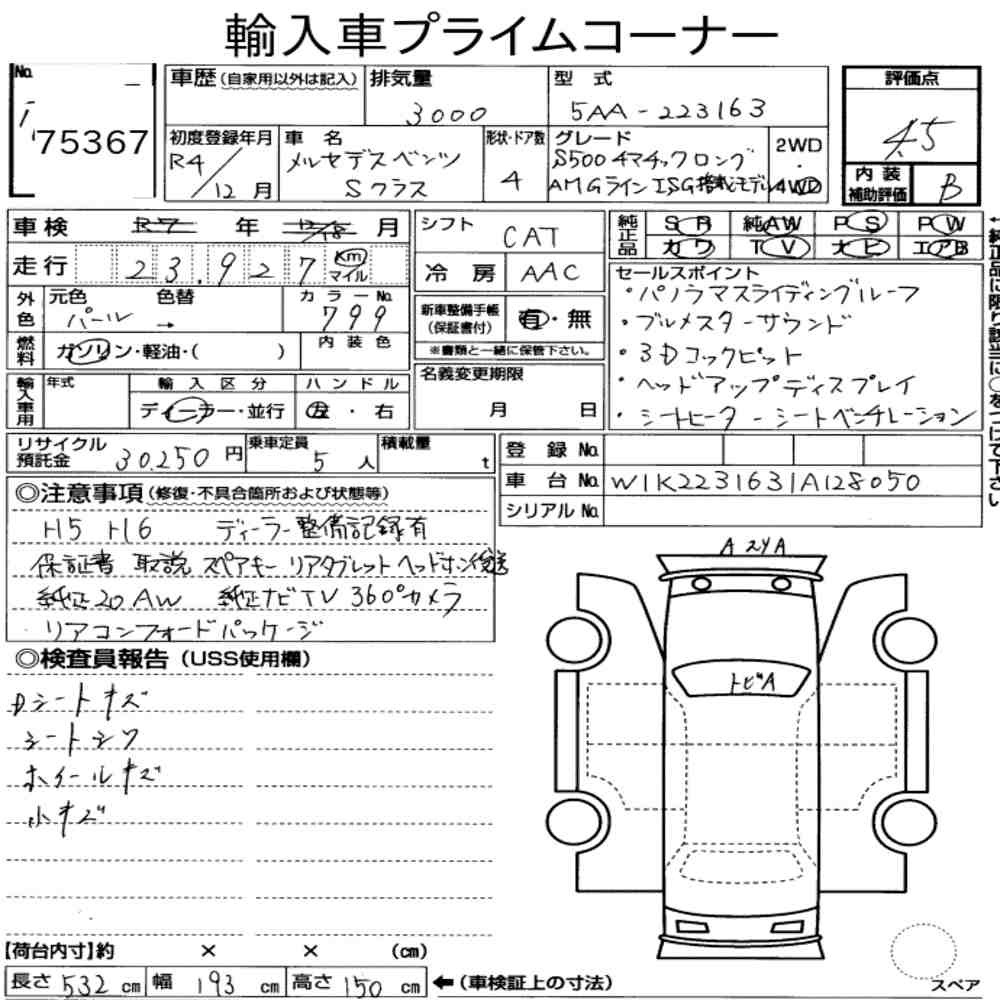 輸入車プライムコーナー
No.
75367
車歴 (自家用以外は記入)
排気量
3000
型 式
5AA-223163
評価点
4.5
初度登録年月
R4/12 月
車 名
メルセデスベンツ
Sクラス
形状・ドア数
4
グレード
S500 4マチックロング
AMGライン ISG搭載モデル
2WD
・
4WD
内 装
補助評価
B
車検 R7 年 12/18 月
走行 23,927 Km マイル
シフト
CAT
冷 房 AAC
純正品
SR 純AW PS PW
カワ TV ナビ エアB
←純正品に限り該当に○をつけて下さい
外色
元色 色替
パール →
カラーNo.
799
燃料
ガソリン・軽油・( )
内 装 色
新車整備手帳
(保証書付)
有・無
※書類と一緒に保管下さい。
セールスポイント
・パノラマスライディングルーフ
・ブルメスターサウンド
・3Dコックピット
・ヘッドアップディスプレイ
・シートヒーター シートベンチレーション
輸入車用
年式
輸 入 区 分
ディーラー・並行
ハ ン ド ル
左 ・ 右
名義変更期限
月 日
リサイクル
預託金
30,250 円
乗車定員
5 人
積載量
t
登 録 No.
車 台 No. W1K2231631A128050
シリアル No.
◎注意事項 (修復・不具合箇所および状態等)
H5 H6 ディーラー整備記録有
保証書 取説 スペアキー リアタブレット ヘッドホン後送
純正20AW 純正ナビTV 360°カメラ
リアコンフォードパッケージ
◎検査員報告 (USS使用欄)
Dシートキズ
シートシワ
ホイールキズ
小キズ
A
A
トビA
【荷台内寸】約 × × (cm)
長さ 532 cm 幅 193 cm 高さ 150 cm ←(車検証上の寸法)
スペア